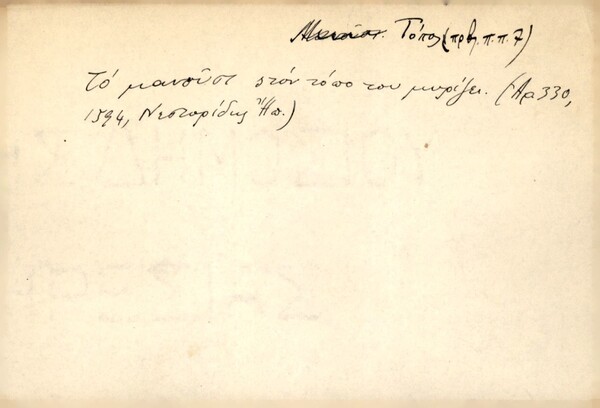 Τόπος (πρβ. π.π. 7)
Τό μανούσι στόν τόπο του μυρίζει. (Ἀρ 330,
1594, Νεστορίδης Ἤπ.)